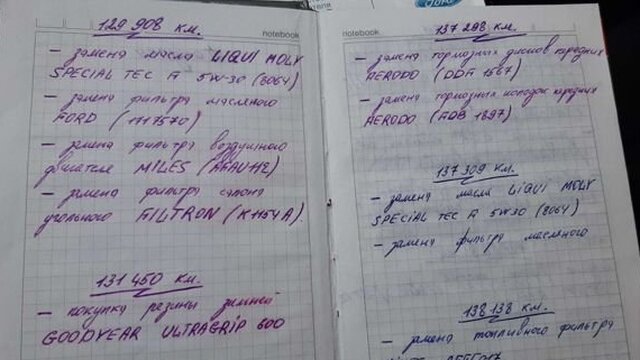 129 908 км.
notebook
- замена масла LIQUI MOLY
SPECIAL TEC A 5W-30 (8064)
- замена фильтра масляного
FORD (1717570)
- замена фильтра воздушного
двигателя MILES
- замена фильтра салона
угольного FILTRON (K1154A)
131 450 км.
- покупка резины зимней
GOODYEAR ULTRAGRIP 600
137 298 км.
notebook
- замена тормозных дисков передних
AERODO
- замена тормозных колодок передних
AERODO (ADB 1897)
137 309 км.
- замена масла LIQUI MOLY
SPECIAL TEC A 5W30 (8064)
- замена фильтра масляного
138 138 км.
- замена топливного фильтра